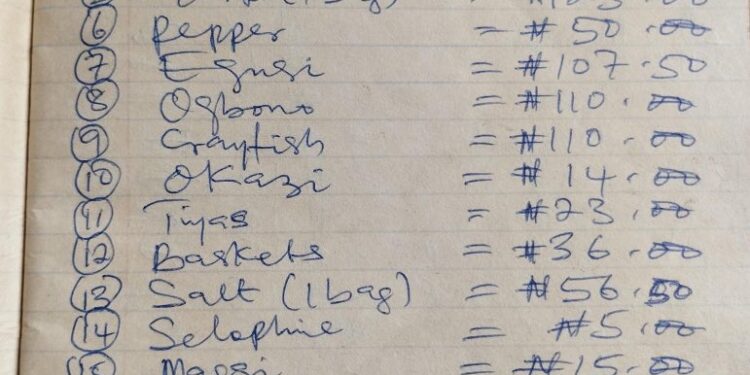 (6) pepper = ₦ 50.00
(7) Egusi = ₦107.50
(8) Ogbono = ₦110.00
(9) Crayfish = ₦110.00
(10) Okazi = ₦ 14.00
(11) = ₦23.00
(12) Baskets = ₦36.00
(13) Salt (1bag) = ₦56.50
(14) Selophine = ₦5.00
(15) Maggi = ₦15.00